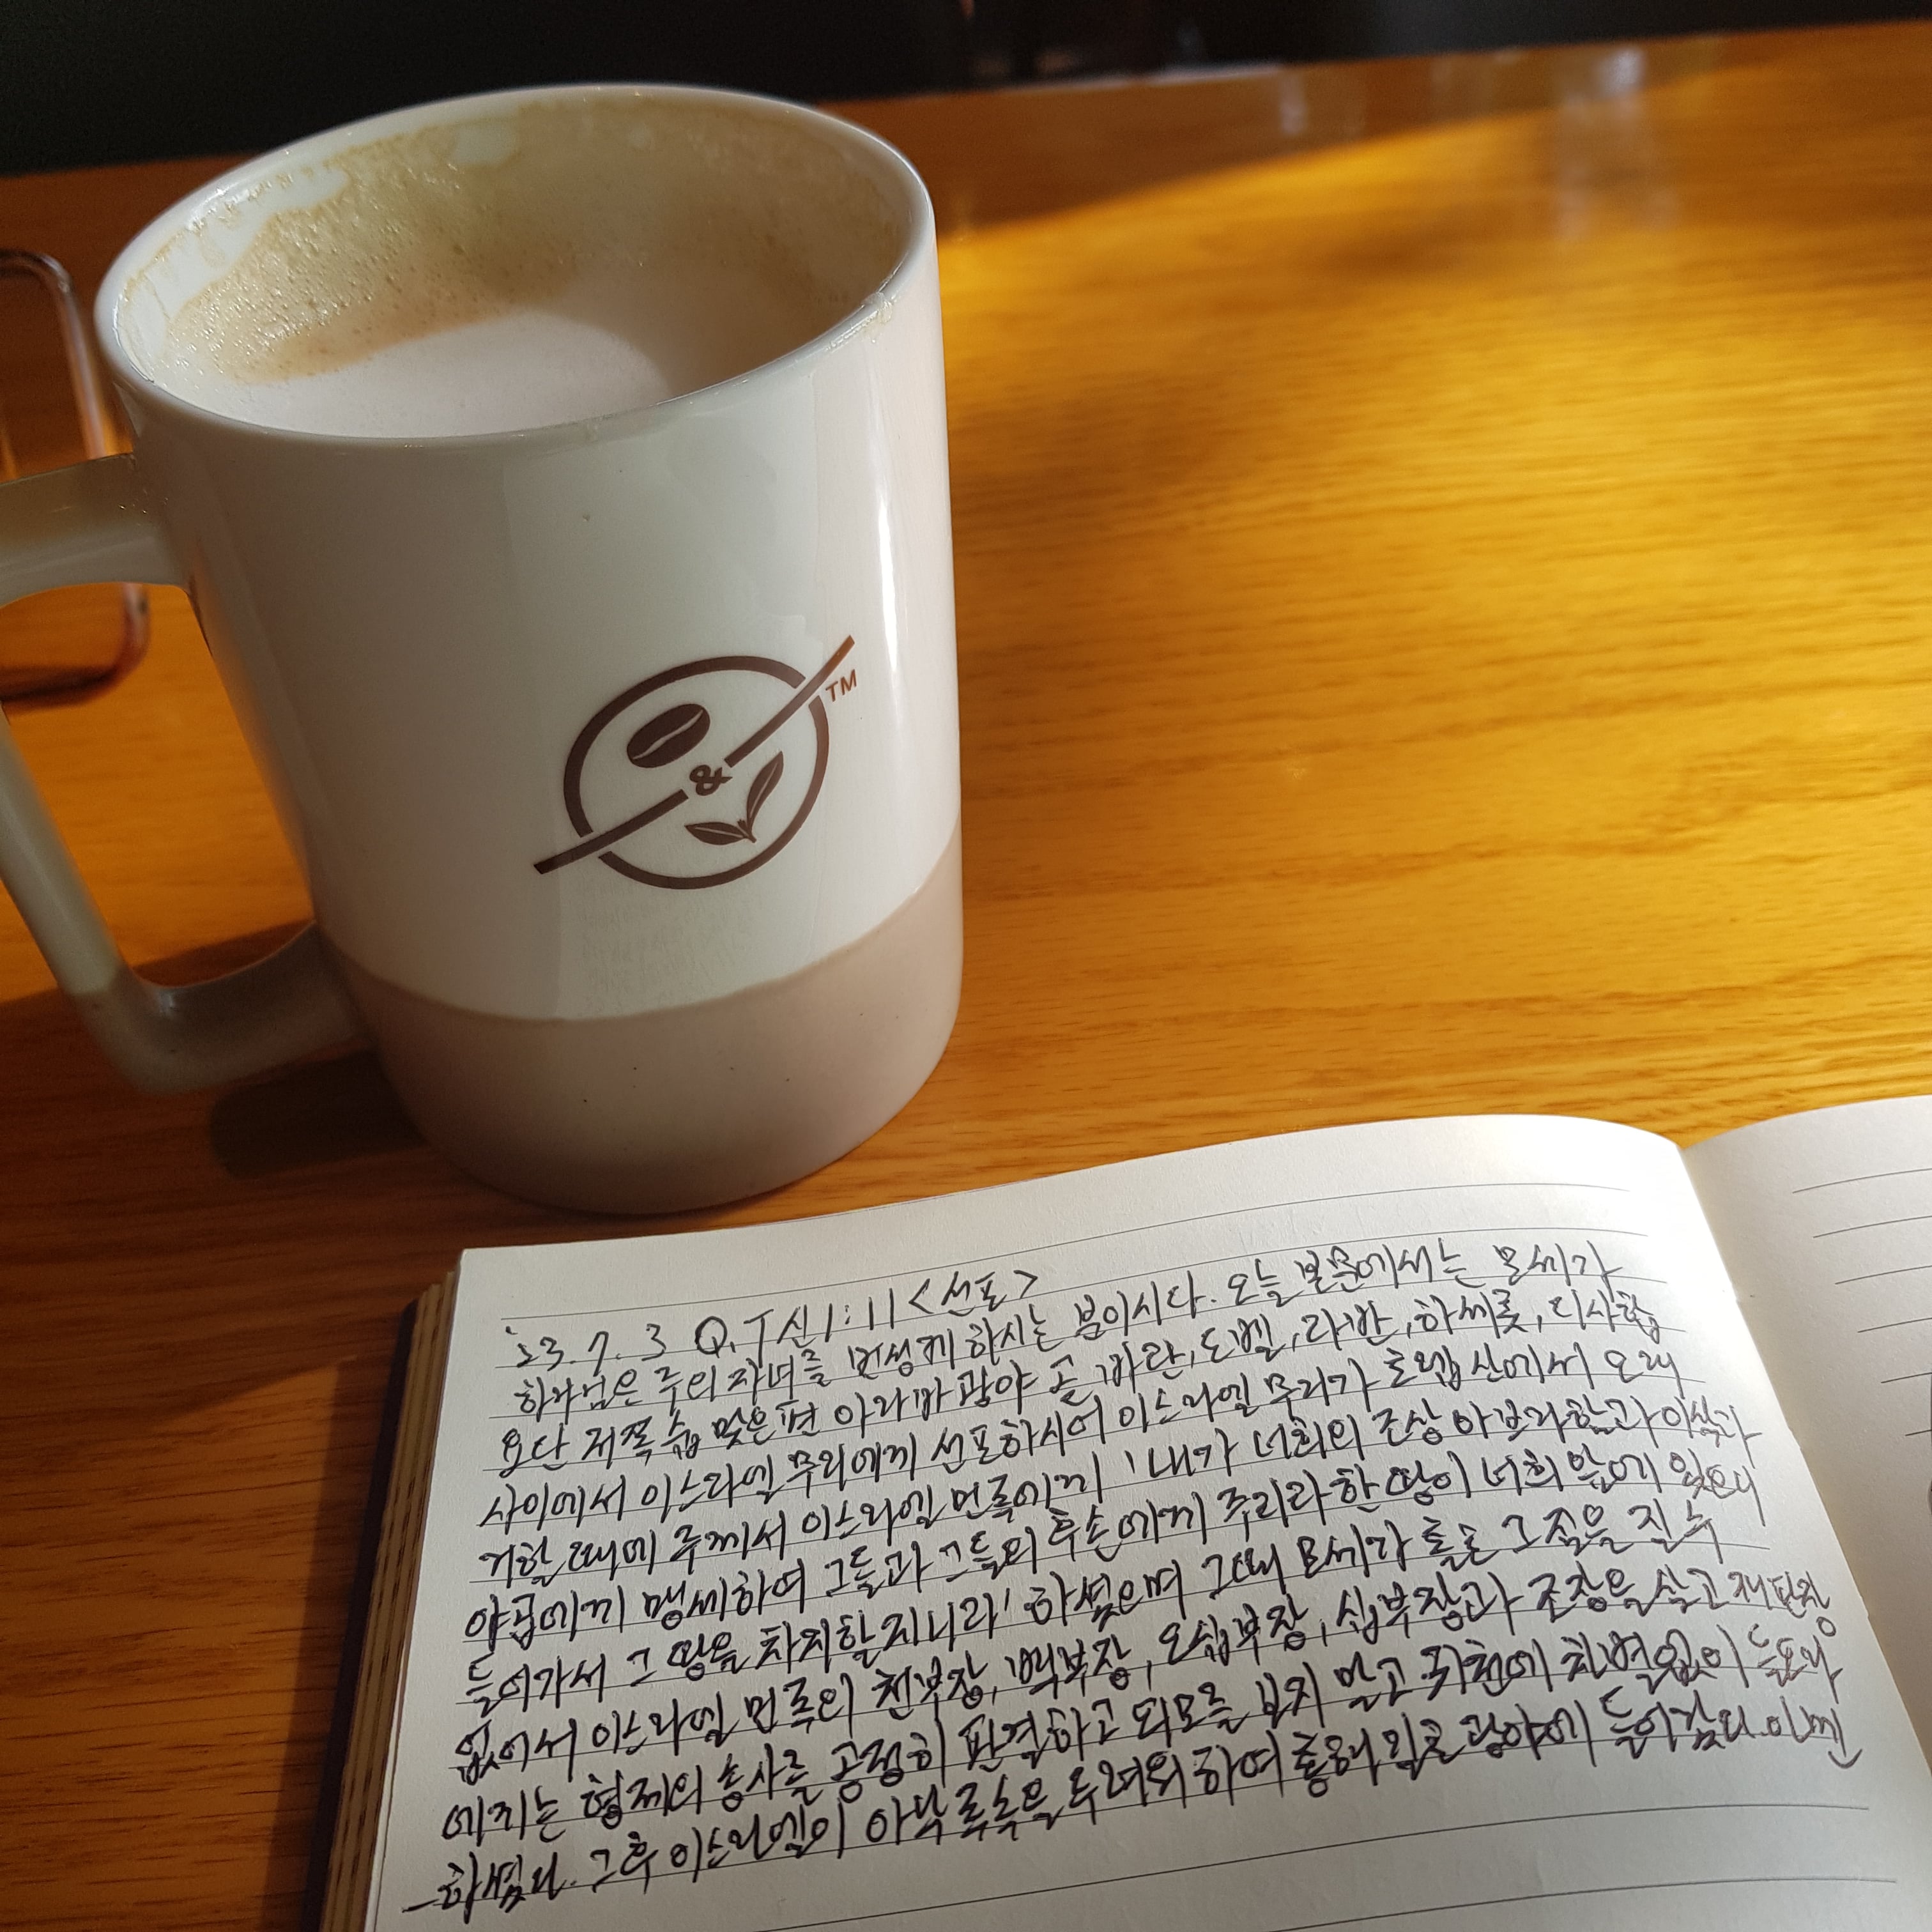 &
TM
'23.7.3 Q.T 신1:11 <선포>
하나님은 주의 자녀를 번성케 하시는 분이시다. 오늘 본문에서는 모세가
요단 저쪽 숲 맞은편 아라바 광야 곧 바란, 도벨, 라반, 하세롯, 디사합
사이에서 이스라엘 무리에게 선포하시어 이스라엘 무리가 호렙 산에서 오래
거할 때에 주께서 이스라엘 민족에게 '내가 너희의 조상 아브라함과 이삭과
야곱에게 맹세하여 그들과 그들의 후손에게 주리라 한 땅이 너희 앞에 있으니
들어가서 그 땅을 차지할지니라' 하셨으며 그때 모세가 홀로 그 짐을 질 수
없어서 이스라엘 민족의 천부장, 백부장, 오십부장, 십부장과 조장을 삼고 재판장
에게는 형제의 송사를 공정히 판결하고 외모를 보지 말고 귀천에 차별없이 들으라
하셨다. 그후 이스라엘이 아낙 족속을 두려워하여 홍해 길로 광야에 들어갔다.